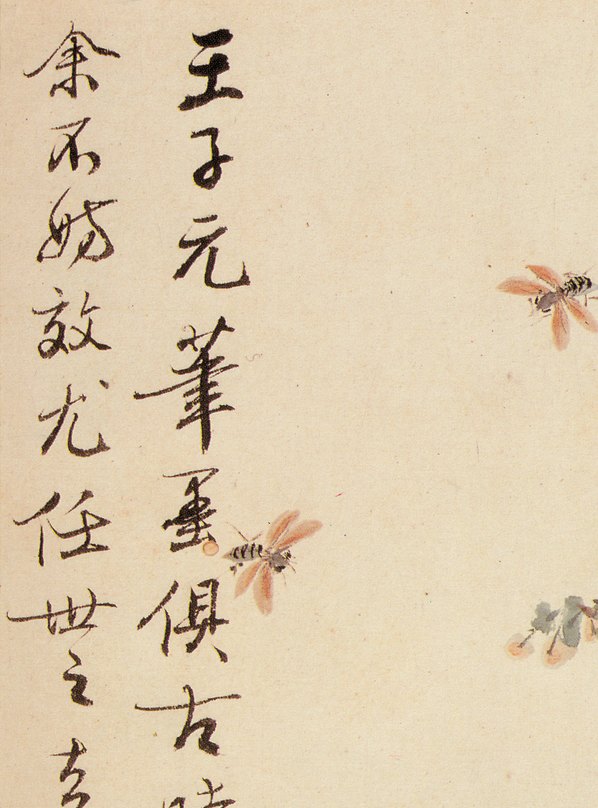 王子元筆墨俱古時
余不妨效尤任世之